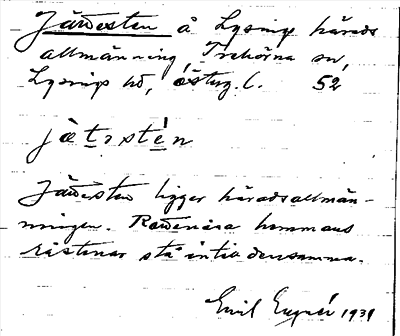 Jättesten å Lysings härads
allmänning, Trehörna sn,
Lysings hd, Österg. l. 52
jètstén
Jättesten ligger häradsallmän-
ningen. hemmans
råstenar stå intill densamma.
Emil 1931